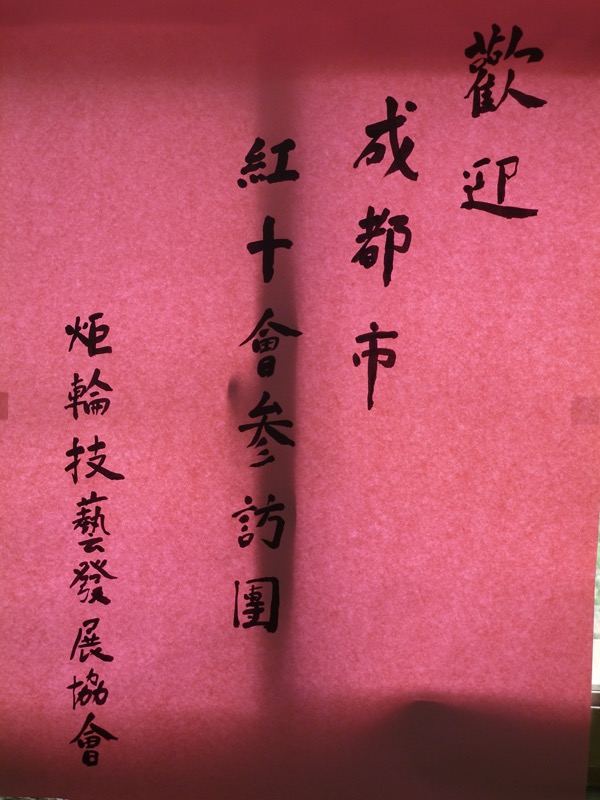 歡迎
成都市
紅十會參訪團
炬輪技藝發展協會